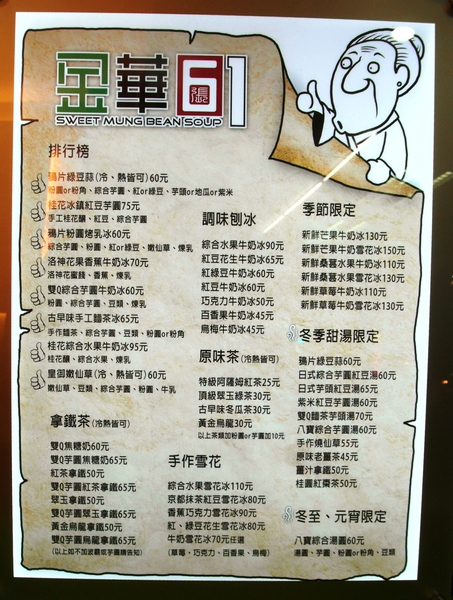 金華61
張
SWEET MUNG BEAN SOUP
排行榜
鴉片綠豆蒜(冷、熱皆可)60元
粉圓or粉角、綜合芋圓、紅or綠豆、芋頭or地瓜or紫米
桂花冰鎮紅豆芋圓75元
手工桂花釀、紅豆、綜合芋圓
鴉片粉圓烤乳冰60元
綜合芋圓、粉圓、紅or綠豆、嫩仙草、煉乳
洛神花果香蕉牛奶冰70元
洛神花蜜餞、香蕉、煉乳
雙Q綜合芋圓牛奶冰60元
粉圓、綜合芋圓、豆類、煉乳
古早味手工麵茶冰65元
手作麵茶、綜合芋圓、豆類、粉圓or粉角
桂花綜合水果牛奶冰95元
桂花釀、綜合水果、煉乳
皇御嫩仙草(冷、熱皆可)60元
嫩仙草、豆類、綜合芋圓、粉圓、牛乳
拿鐵茶(冷熱皆可)
雙Q焦糖奶60元
雙Q芋圓焦糖奶65元
紅茶拿鐵50元
雙Q芋圓紅茶拿鐵65元
翠玉拿鐵50元
雙Q芋圓翠玉拿鐵65元
黃金烏龍拿鐵50元
雙Q芋圓烏龍拿鐵65元
(以上如不加波霸或芋圓請告知)
調味刨冰
綜合水果牛奶冰90元
紅豆花生牛奶冰65元
紅綠豆牛奶冰60元
紅豆牛奶冰60元
花生牛奶冰50元
巧克力牛奶冰50元
百香果牛奶冰45元
烏梅牛奶冰45元
原味茶(冷熱皆可)
特級阿薩姆紅茶25元
頂級翠玉綠茶30元
古早味冬瓜茶30元
黃金烏龍30元
以上茶類加粉圓or芋圓加10元
手作雪花
綜合水果雪花冰110元
京都抹茶紅豆雪花冰80元
香蕉巧克力雪花冰90元
紅、綠豆花生雪花冰80元
牛奶雪花冰70元任選
(草莓、巧克力、百香果、烏梅)
季節限定
新鮮芒果牛奶冰130元
新鮮芒果牛奶雪花冰150元
新鮮桑葚水果牛奶冰110元
新鮮桑葚水果雪花冰130元
新鮮草莓牛奶冰110元
新鮮草莓牛奶雪花冰130元
冬季甜湯限定
鴉片綠豆蒜60元
日式綜合芋圓紅豆湯60元
日式芋頭紅豆湯65元
紫米紅豆芋圓湯60元
雙Q麵茶芋頭湯70元
八寶綜合芋圓湯60元
手作燒仙草55元
原味老薑茶45元
薑汁拿鐵50元
桂圓紅棗茶50元
冬至、元宵限定
八寶綜合湯圓60元
湯圓、芋圓、粉圓or粉角、豆類